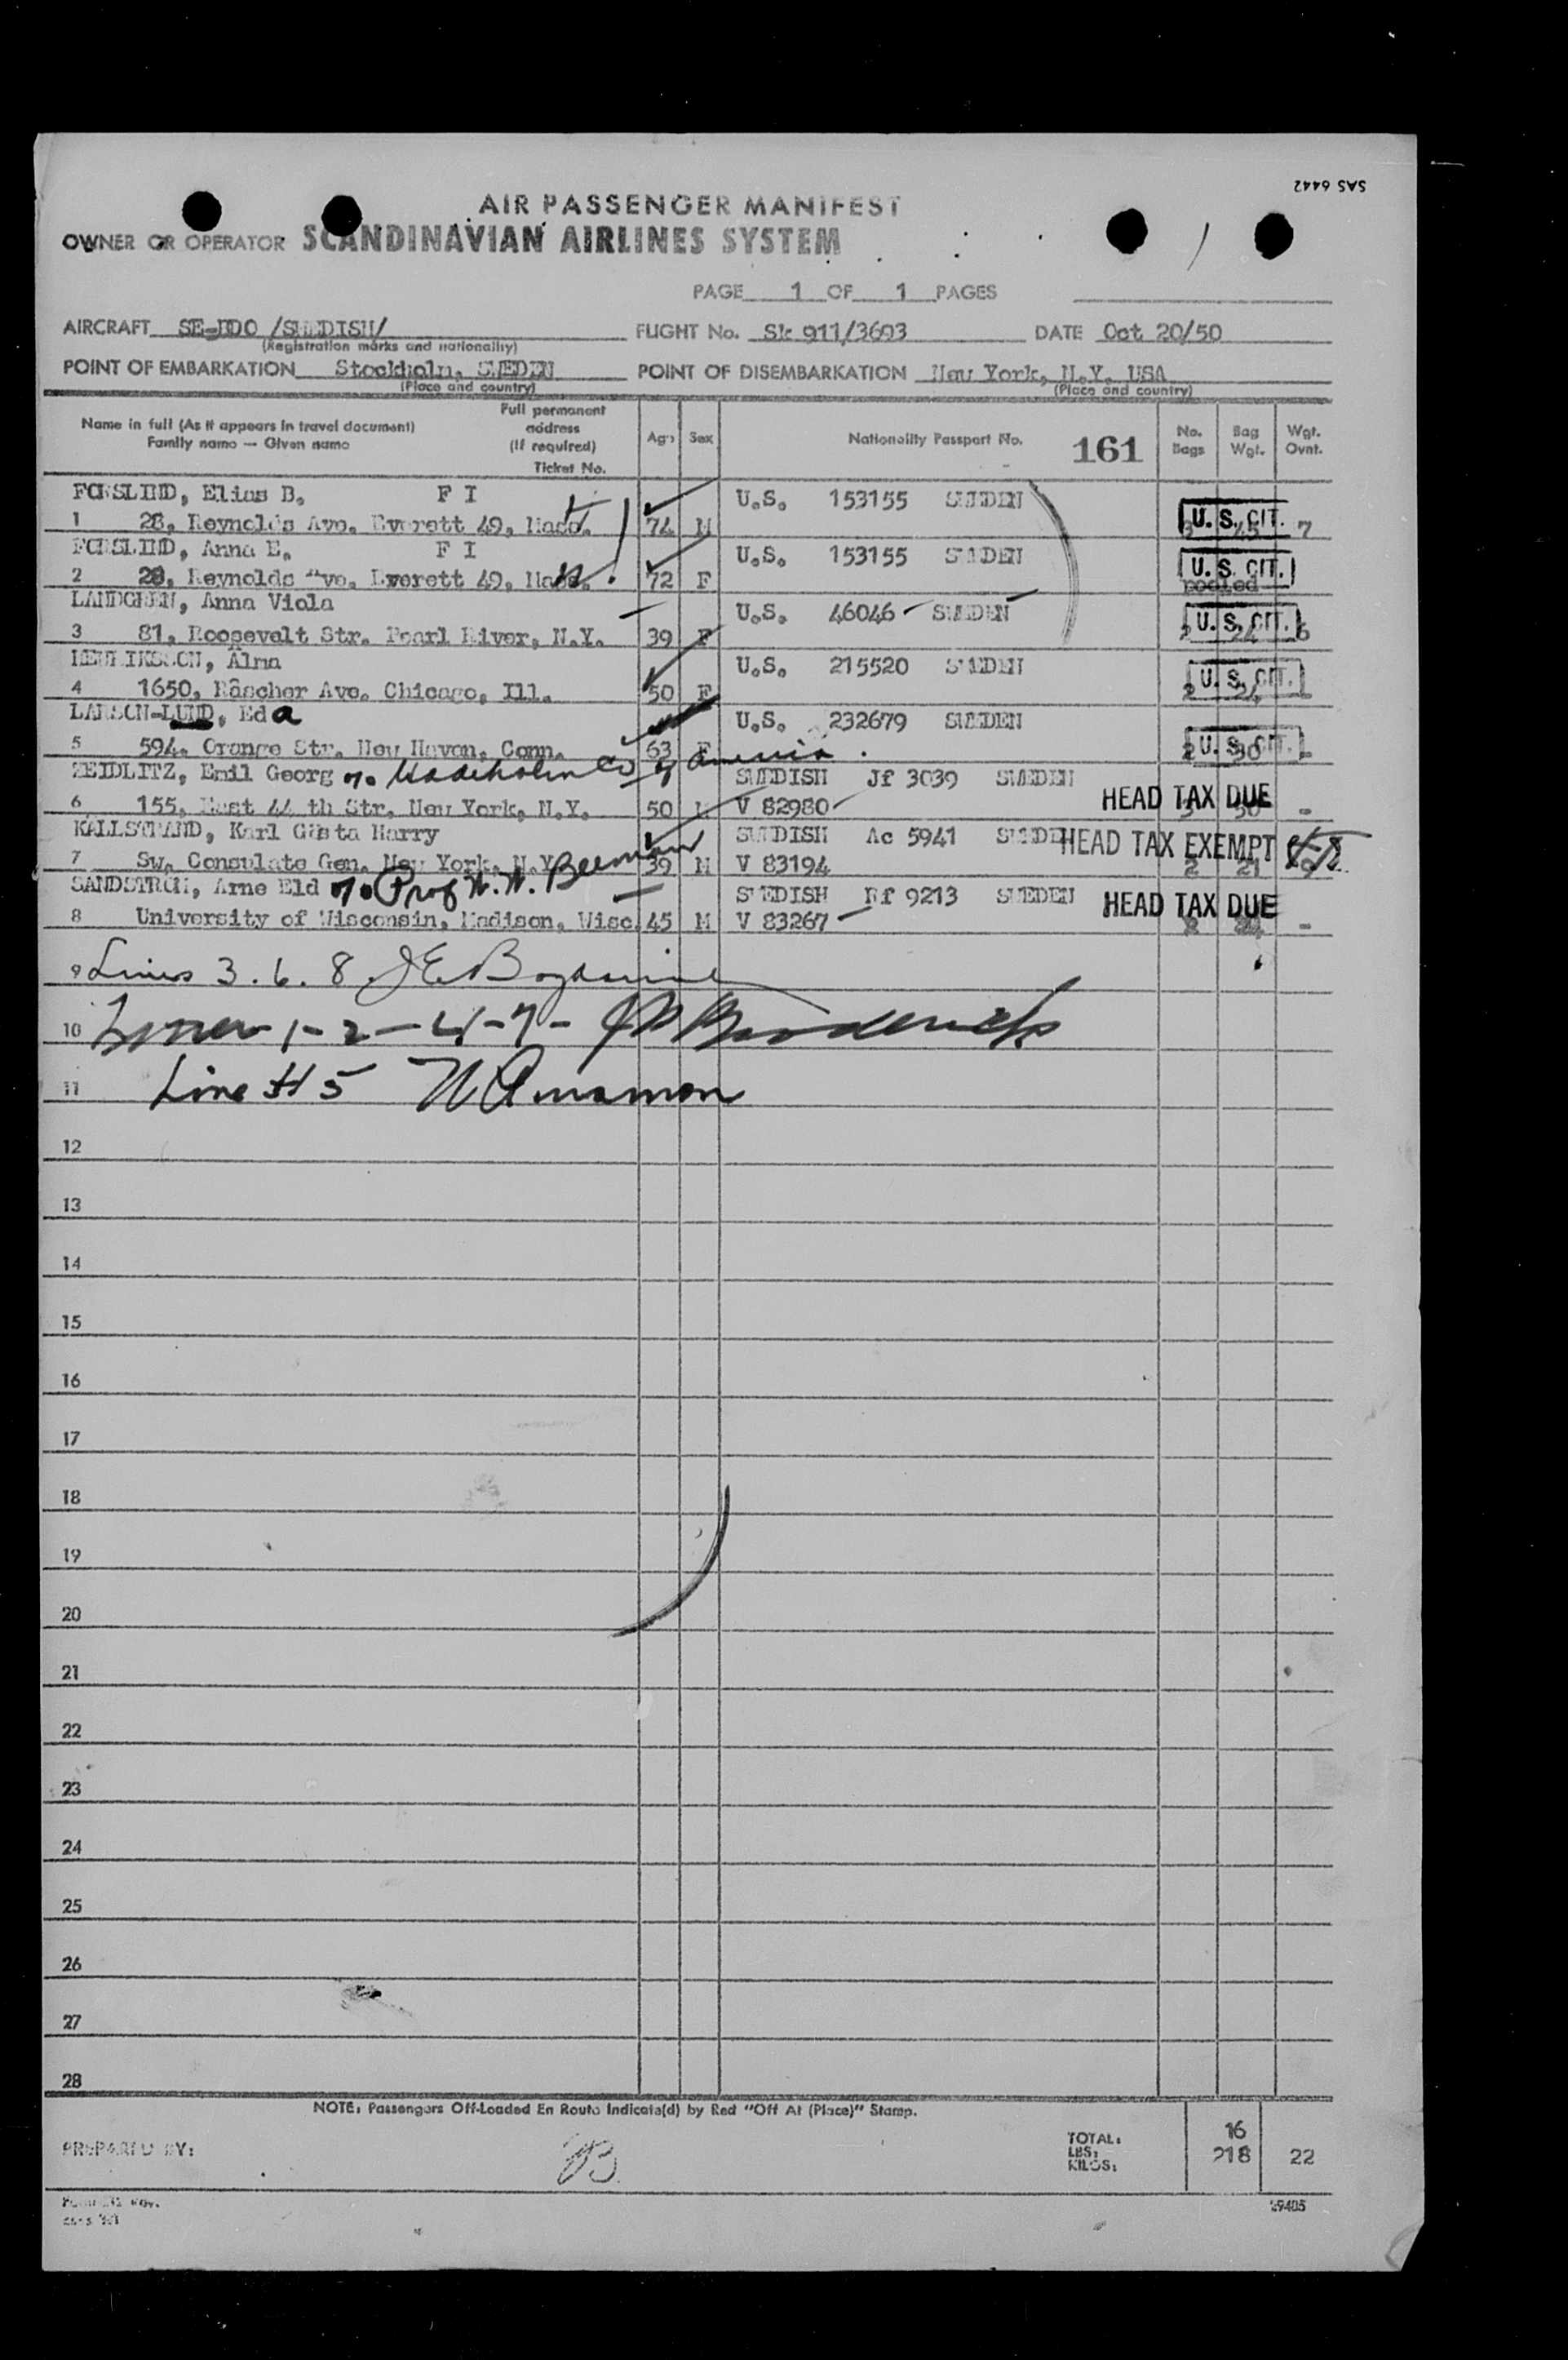 SAS 6442
AIR PASSENGER MANIFEST
OWNER OR OPERATOR SCANDINAVIAN AIRLINES SYSTEM
PAGE 1 OF 1 PAGES
AIRCRAFT /SWEDISH/ FLIGHT No. Sk 911/3603 DATE Oct 20/50
(Registration marks and nationality)
POINT OF EMBARKATION Stockholm, SWEDEN POINT OF DISEMBARKATION New York, N.Y. USA
(Place and country) (Place and country)
Name in full (As it appears in travel document)
Family name — Given name
Full permanent address (If required)
Ticket No.
Age Sex Nationality Passport No. 161 No. Bags Bag Wgt. Wgt. Ovnt.
FORSLIND, Elias B. F I U.S. 153155 SWEDEN
1 28, Reynolds Ave. Everett 49, Mass. 74 M U. S. CIT. 7
FORSLIND, Anna E. F I U.S. 153155 SWEDEN
2 28, Reynolds Ave. Everett 49, Mass. 72 F U. S. CIT. pooled
LANDGREN, Anna Viola U.S. 46046 SWEDEN
3 81, Roosevelt Str. Pearl River, N.Y. 39 F 2 U. S. CIT. 24 6
HENRIKSSON, Alma U.S. 215520 SWEDEN
4 1650, Rascher Ave. Chicago, Ill. 50 F 2 U. S. CIT. 24 -
LARSON-LUND, Eda U.S. 232679 SWEDEN
5 594, Orange Str. New Haven, Conn. 63 F 2 U. S. CIT. 30 -
ZEIDLITZ, Emil Georg % Co of America. SWEDISH Jf 3039 SWEDEN
6 155, East 44 th Str. New York, N.Y. 50 M V 82980 HEAD TAX DUE -
KÄLLSTRAND, Karl Gösta Harry SWEDISH Ac 5941 SWEDEN HEAD TAX EXEMPT
7 Sw. Consulate Gen. New York, N.Y. 39 M V 83194 2 21
SANDSTRÖM, Arne Eld % Prof W. W. Beeman SWEDISH Rf 9213 SWEDEN HEAD TAX DUE
8 University of Wisconsin, Madison, Wisc. 45 M V 83267 2 24 -
9 Lines 3. 6. 8
10 Lines 1-2-4-7- Broderick
11 Line # 5
12
13
14
15
16
17
18
19
20
21
22
23
24
25
26
27
28
NOTE: Passengers Off-Loaded En Route Indicate(d) by Red "Off At (Place)" Stamp.
PREPARED BY: B
TOTAL: 16
LBS:
KILOS: 218 22
29405